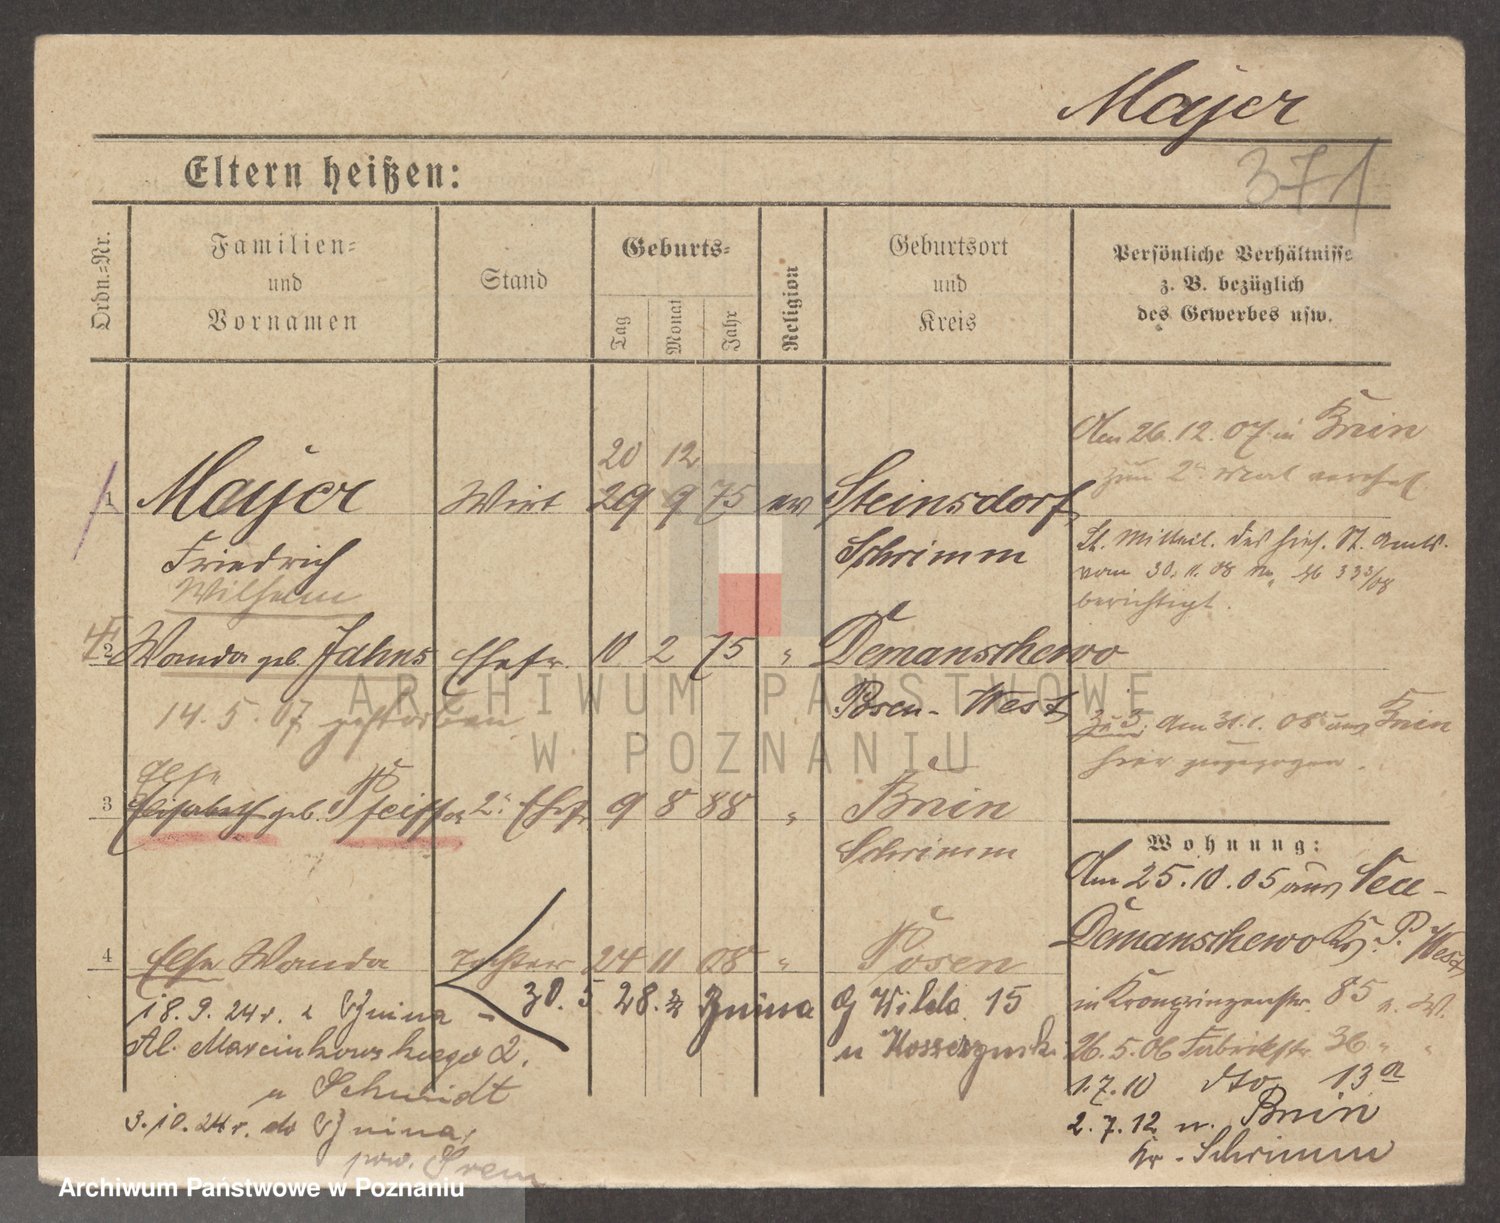 Majer
371
Eltern heißen:
Ordn.-Nr.
Familien-
und
Vornamen
Stand
Geburts-
Tag
Monat
Jahr
Religion
Geburtsort
und
Kreis
Persönliche Verhältnisse
z. B. bezüglich
des Gewerbes usw.
Am 26.12.07 in Bnin
zum 2ten Mal
20 12
1 Majer Wirt 29 9 75 ev Steinsdorf
Friedrich Schrimm
Wilhelm
Lt. Mitteil. des hies. St. Amts.
vom 30.11.08 No 333/08
berichtigt.
2 Wanda geb. Jahns Ehefr. 10 2 75 " Demanschewo
Posen-West
14.5.07 gestorben
zu 3. Am 31.1.08 aus Bnin
hier zugezogen.
Else
3 Elisabeth geb. Pfeiffer 2te Ehefr. 9 8 88 " Bnin
Schrimm
Wohnung:
Am 25.10.05 aus Neu-
Demanschewo Kr. P. West
4 Else Wanda Tochter 24 11 08 " Posen
in Kronprinzenstr. 85 b. W.
18.9.24 r. z Bnina -
30.5.28. z Bnina G Wilda 15
Al. Marcinkowskiego 2.
26.5.06 Fabrikstr. 36 " "
u Schmidt
1.7.10 dto. 13a
3.10.24 r. do Bnina,
2.7.12 n. Bnin
pow. Śrem
Kr. Schrimm
ARCHIWUM PAŃSTWOWE
W POZNANIU
Archiwum Państwowe w Poznaniu